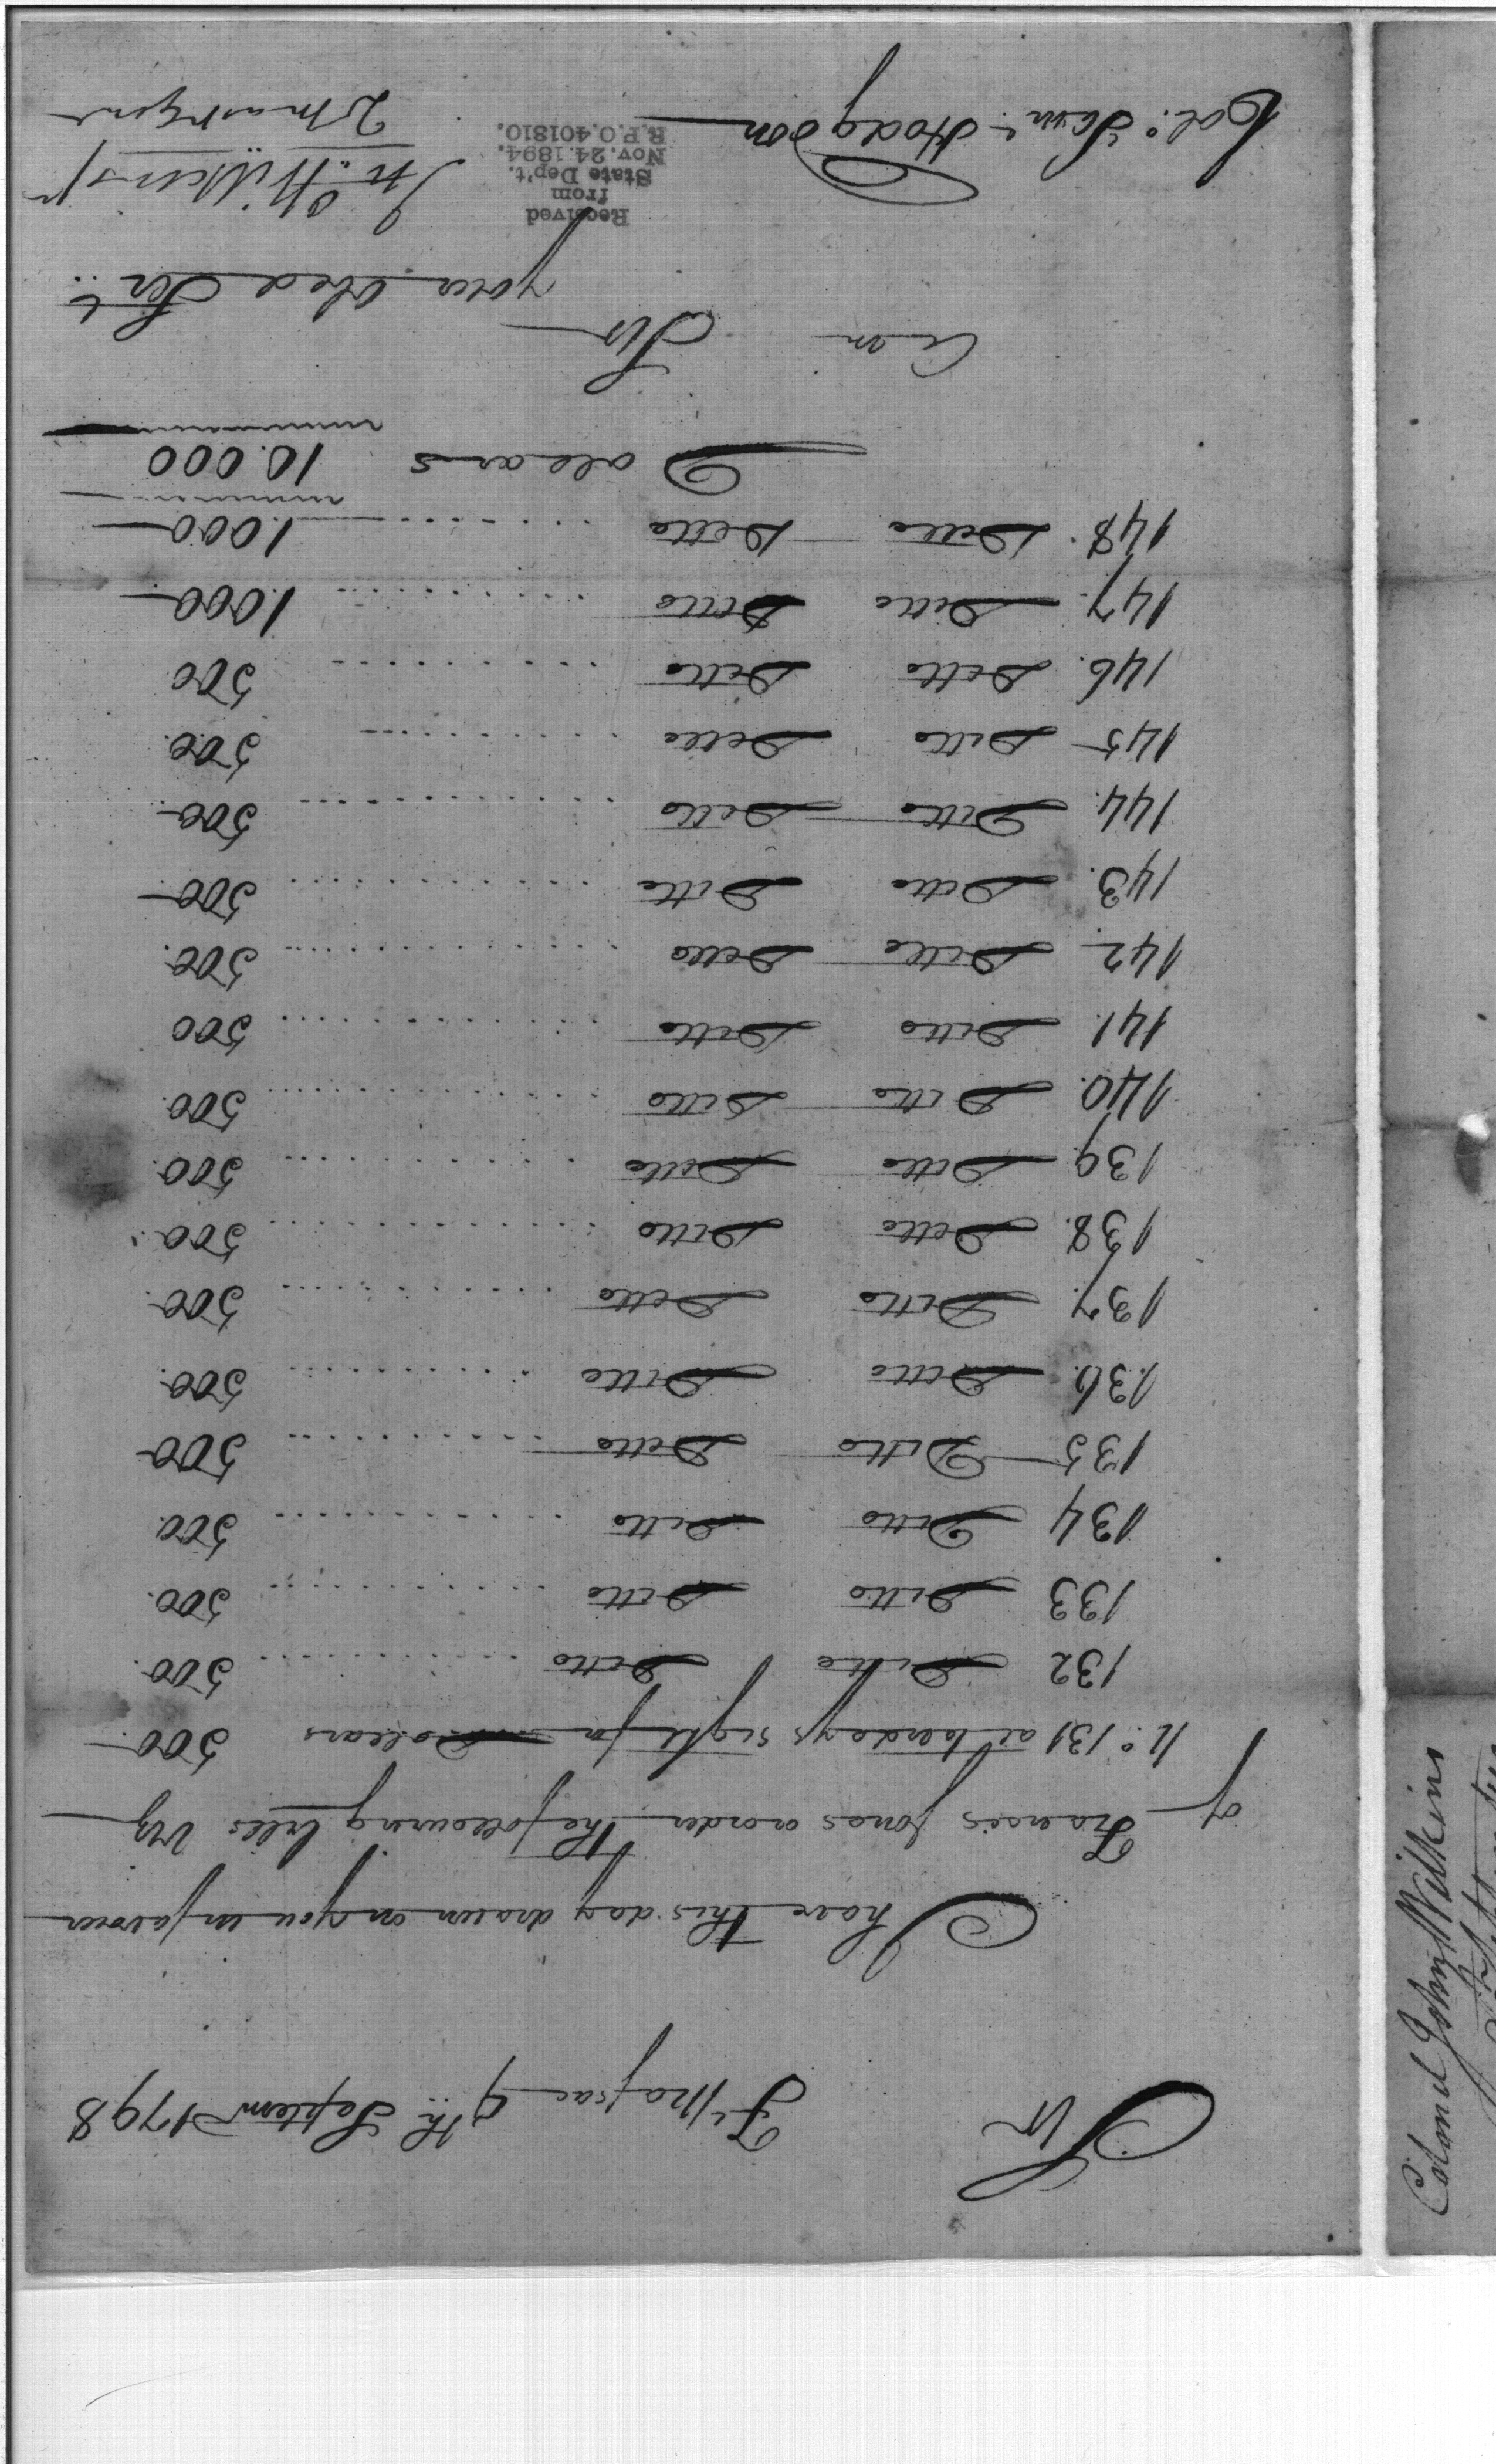 Sir
Ft. Mifrae 9th Septem 1798
I have this day drawn on you in favour
of Francis Jonas or order the following bills Viz
No. 131 at ten days sight for Dollars 500.
132 Ditto Ditto 500.
133 Ditto Ditto 500.
134 Ditto Ditto 500.
135 Ditto Ditto 500
136. Ditto Ditto 500.
137. Ditto Ditto 500.
138. Ditto Ditto 500.
139. Ditto Ditto 500.
140. Ditto Ditto 500.
141. Ditto Ditto 500
142. Ditto Ditto 500.
143. Ditto Ditto 500.
144. Ditto Ditto 500.
145 Ditto Ditto 500.
146. Ditto Ditto 500
147. Ditto Ditto 1.000
148. Ditto Ditto 1.000
Dollars 10.000
I am Sir
your Obed Servt.
Jn. Wilkins Jr
Qr Mast Genl
Col. Saml. Hodgdon
Received
from
State Dep't.
Nov. 24. 1894.
R.P.O. 401810.
Colonel John Wilkins